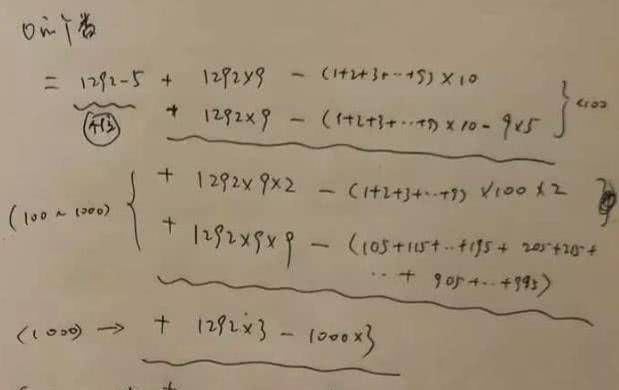 0的个数
= 1292-5 + 1292×9 - (1+2+3+···+9)×10
+ 1292×9 - (1+2+3+···+9)×10 - 9×5 } <100
(100~1000) { + 1292×9×2 - (1+2+3+···+9)×100×2 }
+ 1292×9×9 - (105+115+···+195+ 205+215+
··· + 905+···+995)
(1000) → + 1292×3 - 1000×3